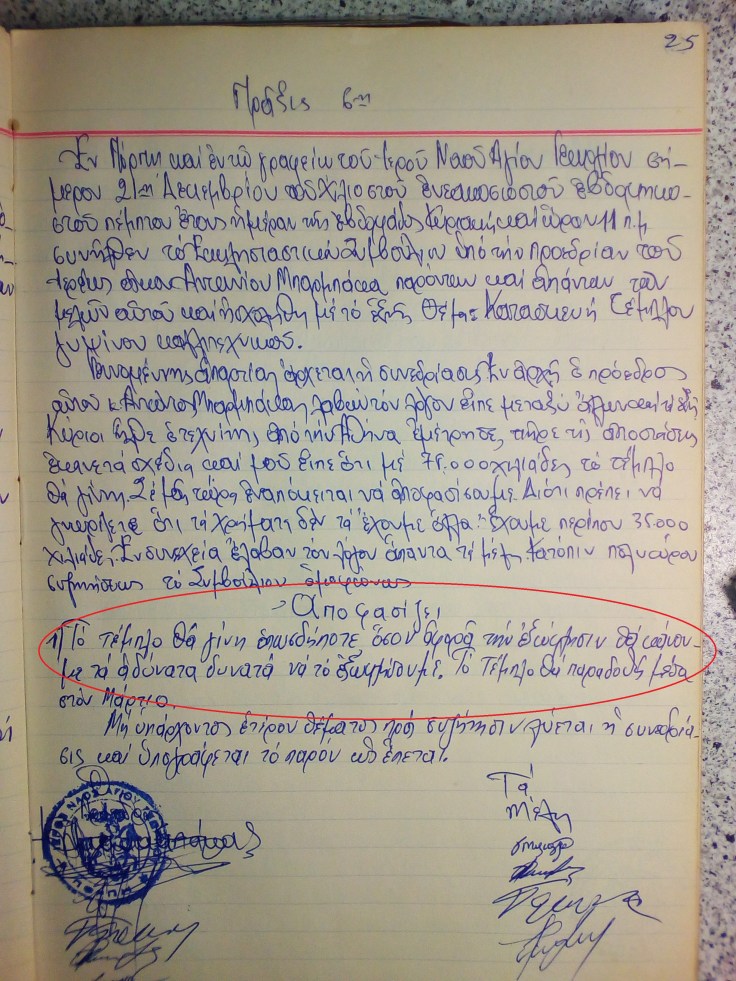 25
Πράξις 6η
Ἐν Πόρπη καὶ ἐν τῷ γραφείῳ τοῦ Ἱεροῦ Ναοῦ Ἁγίου Γεωργίου σή-
μερον 21ην Δεκεμβρίου τοῦ χιλιοστοῦ ἐνεακοσιοστοῦ ἑβδομηκο-
στοῦ πέμπτου ἔτους ἡμέραν τῆς ἑβδομάδος Κυριακὴ καὶ ὥραν 11 π.μ
συνῆλθεν τὸ Ἐκκλησιαστικὸν Συμβούλιον ὑπὸ τὴν προεδρίαν τοῦ
ἱερέως Ἀντωνίου Μπαρμπάκα παρόντων καὶ ἁπάντων τῶν
μελῶν αὐτοῦ καὶ ἠσχολήθη μὲ τὸ ἑξῆς θέμα: Κατασκευὴ Τέμπλου
γυψίνου καλλιτεχνικοῦ.
Γενομένης ἀπαρτίας ἄρχεται ἡ συνεδρίασις. Ἐν ἀρχῇ ὁ πρόεδρος
αὐτοῦ κ. Ἀντώνιος Μπαρμπάκας λαβὼν τὸν λόγον εἶπε μεταξὺ ἄλλων καὶ τὰ ἑξῆς
Κύριοι ἦλθε ὁ τεχνίτης ἀπὸ τὴν Ἀθήνα ἐμέτρησε, πῆρε τὶς ἀποστάσεις
ἔκανε τὰ σχέδια καὶ μοῦ εἶπε ὅτι μὲ 75.000 χιλιάδες τὸ τέμπλο
θὰ γίνη. Σὲ μᾶς τώρα ἐναπόκειται νὰ ἀποφασίσουμε. Διότι πρέπει νὰ
γνωρίζετε ὅτι τὰ χρήματα δὲν τὰ ἔχουμε ὅλα. Ἔχουμε περίπου 35.000
χιλιάδες. Ἐν συνεχεία ἔλαβαν τὸν λόγον ἅπαντα τὰ μέλη. Κατόπιν πολυώρου
συζητήσεως τὸ Συμβούλιον ὁμοφώνως
Ἀποφασίζει
1) Τὸ τέμπλο θὰ γίνη ὁπωσδήποτε ὅσον ἀφορᾶ τὴν ἐξώφλησιν θὰ κάνου-
με τὰ ἀδύνατα δυνατὰ νὰ τὸ ἐξωφλήσουμε. Τὸ Τέμπλο θὰ παραδοθῆ μέσα
στὸν Μάρτιο.
Μὴ ὑπάρχοντος ἑτέρου θέματος πρὸς συζήτησιν λύεται ἡ συνεδρία-
σις καὶ ὑπογράφεται τὸ παρὸν ὡς ἕπεται.
Τὰ
Μέλη